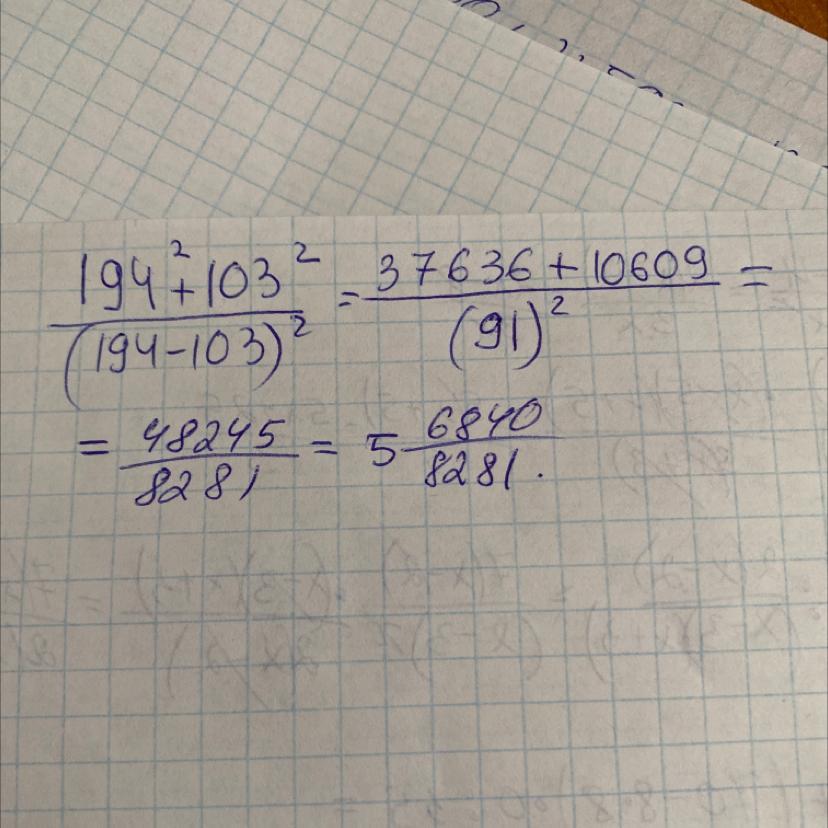 194²+103² / (194-103)² = 37636+10609 / (91)² =
= 48245 / 8281 = 5 6840 / 8281.